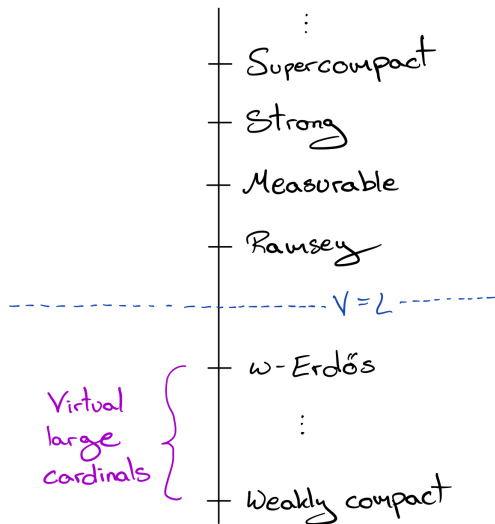 ⋮
Supercompact
Strong
Measurable
Ramsey
V=L
ω-Erdős
Virtual
large
cardinals
⋮
Weakly compact